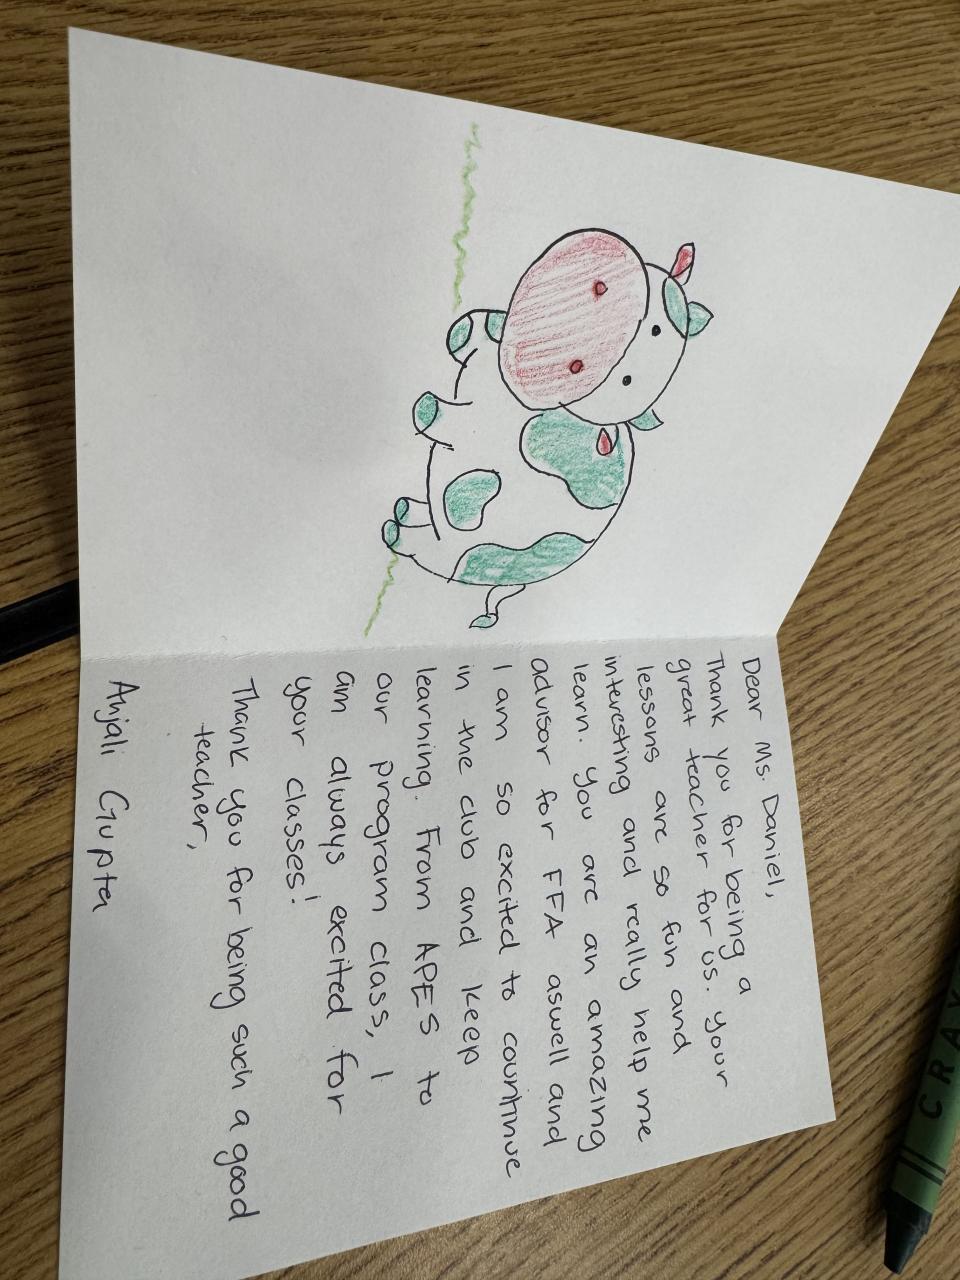 Dear Ms. Daniel,
Thank you for being a
great teacher for us. Your
lessons are so fun and
interesting and really help me
learn. You are an amazing
advisor for FFA aswell and
I am so excited to countinue
in the club and keep
learning. From APES to
our program class, I
am always excited for
your classes!
Thank you for being such a good
teacher,
Anjali Gupta
CRAY